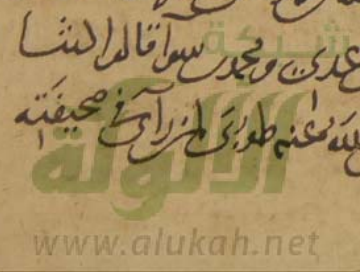 عدي ومحمد سوا قالوا لنا
الله عنه طوبى لمن رأى في صحيفته
شبكة
الألوكة
www.alukah.net